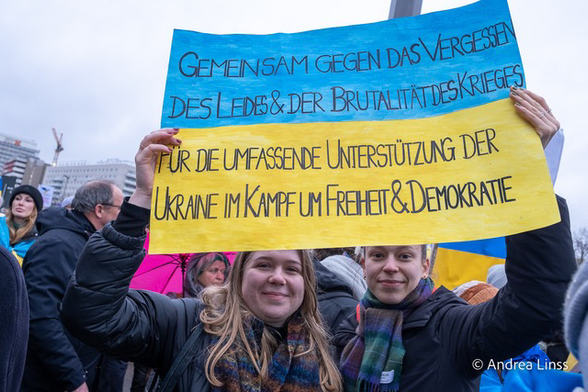 GEMEINSAM GEGEN DAS VERGESSEN
DES LEIDES & DER BRUTALITÄT DES KRIEGES
FÜR DIE UMFASSENDE UNTERSTÜTZUNG DER
UKRAINE IM KAMPF UM FREIHEIT & DEMOKRATIE
© Andrea Linss